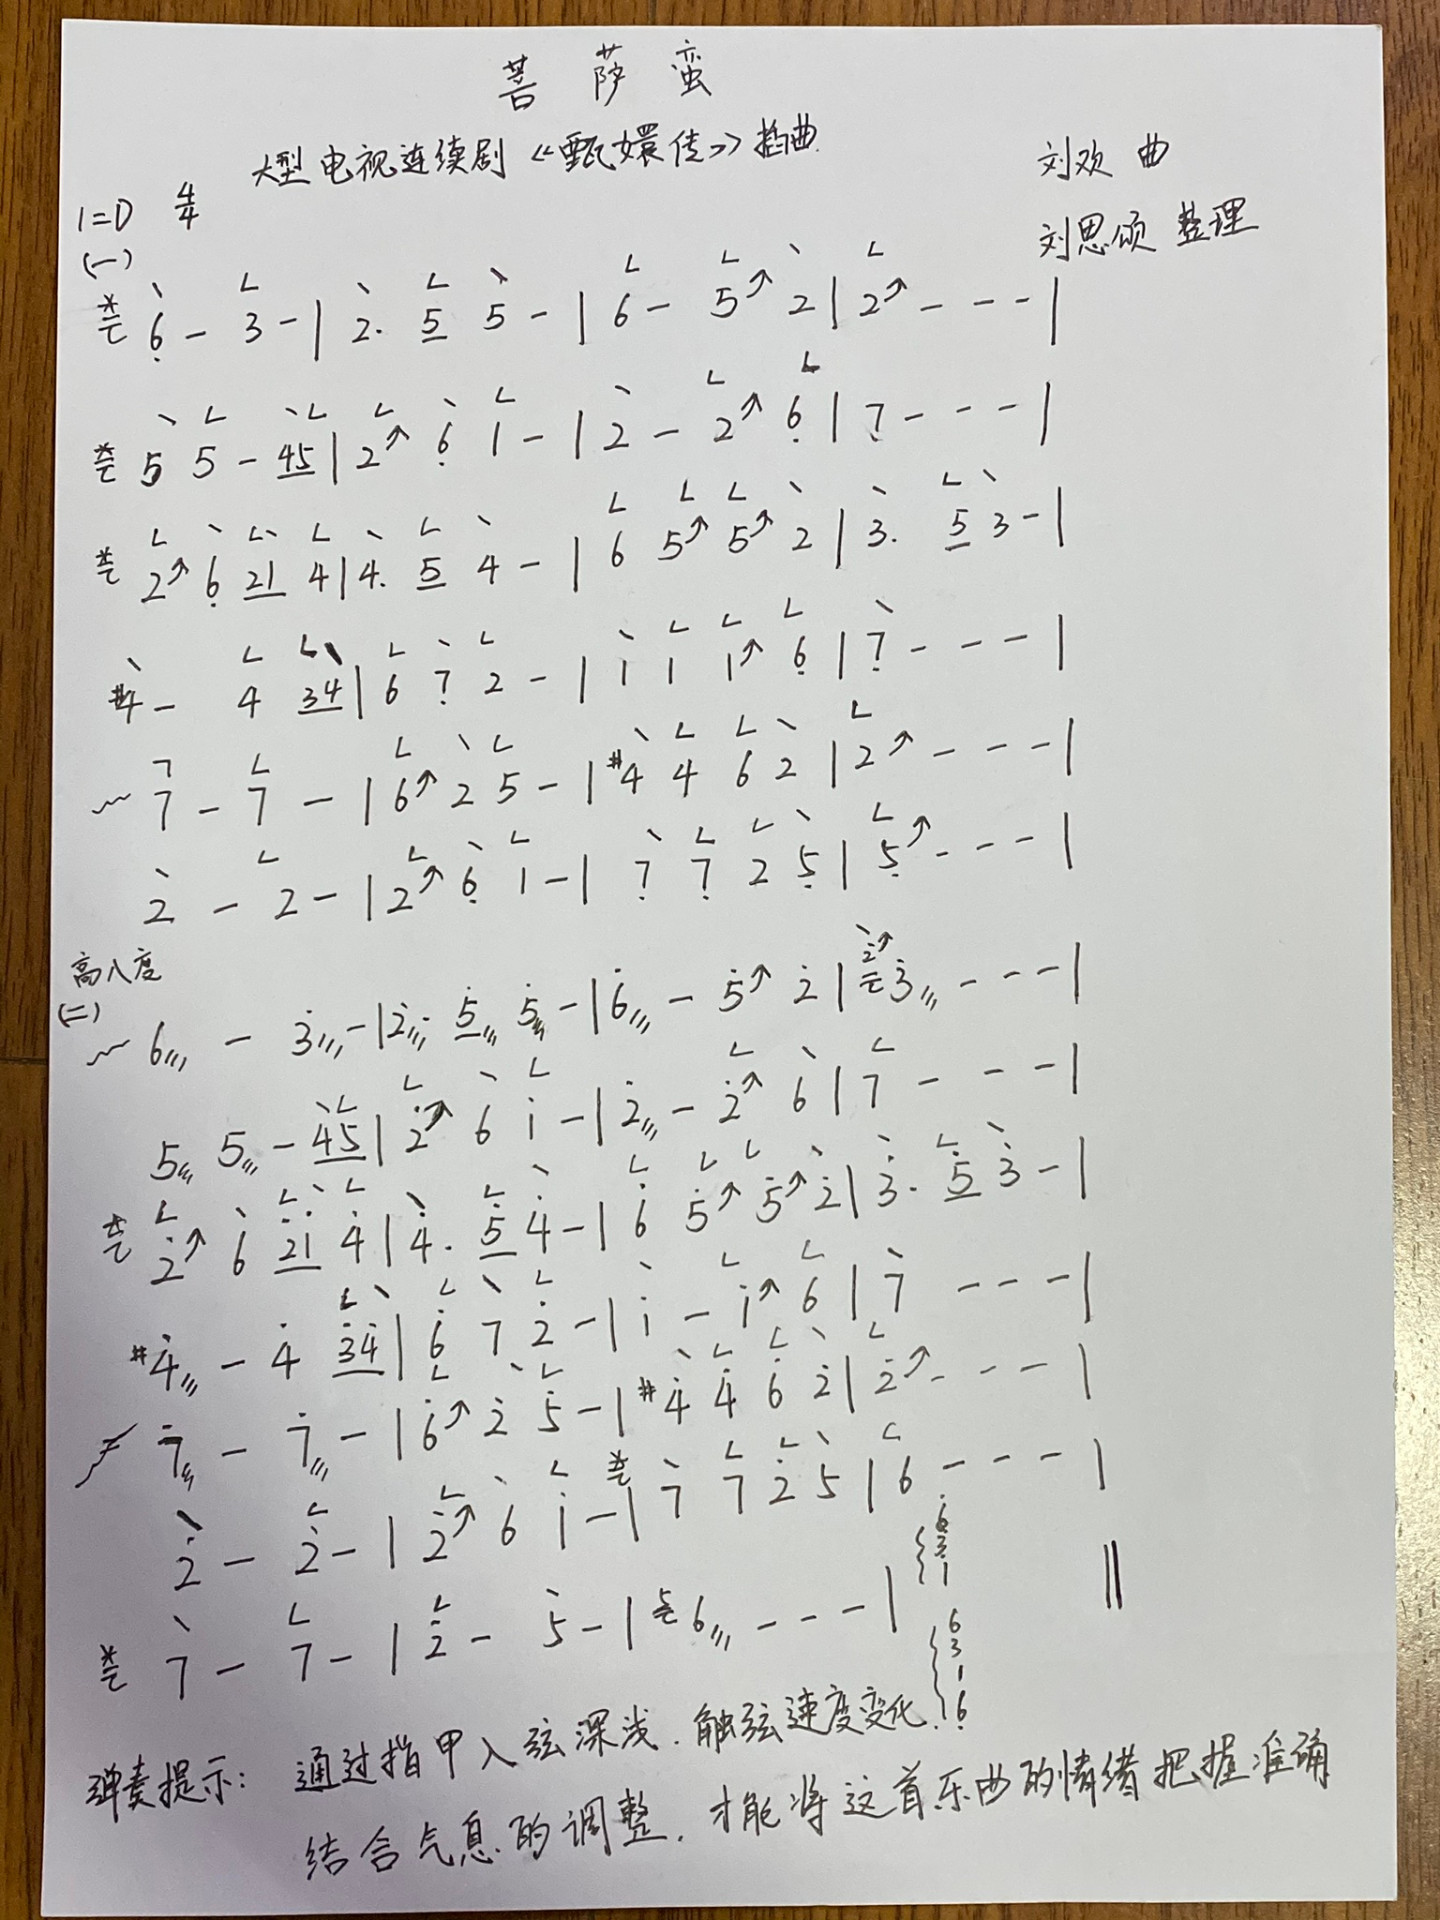 菩萨蛮
大型电视连续剧《甄嬛传》插曲
刘欢 曲
1=D 4/4
刘思颂 整理
(一)
6̣ - 3 - | 2. 5 5 - | 6 - 5↗ 2 | 2↗ - - - |
5 5 - 45 | 2↗ 6̣ 1 - | 2 - 2↗ 6̣ | 7̣ - - - |
2↗ 6̣ 21 4 | 4. 5 4 - | 6 5↗ 5↗ 2 | 3. 5 3 - |
#4 - 4 34 | 6 7̣ 2 - | 1 1 1↗ 6̣ | 7̣ - - - |
7 - 7 - | 6↗ 2 5 - | #4 4 6 2 | 2↗ - - - |
2 - 2 - | 2↗ 6̣ 1 - | 7̣ 7̣ 2 5̣ | 5̣↗ - - - |
高八度
(二)
6/// - 3̇/// - | 2̇///. 5̇/// 5̇/// - | 6̇/// - 5̇↗ 2̇ | 2̇↗ 3̇/// - - - |
5/// 5/// - 45 | 2̇↗ 6 1̇ - | 2̇/// - 2̇↗ 6 | 7 - - - |
2̇↗ 6 2̇1̇ 4̇ | 4̇. 5̇ 4̇ - | 6̇ 5̇↗ 5̇↗ 2̇ | 3̇. 5̇ 3̇ - |
#4̇/// - 4̇ 3̇4̇ | 6̇ 7 2̇ - | 1̇ - 1̇↗ 6 | 7 - - - |
7̇/// - 7̇/// - | 6̇↗ 2̇ 5̇ - | #4̇ 4̇ 6̇ 2̇ | 2̇↗ - - - |
2̇ - 2̇ - | 2̇↗ 6 1̇ - | 7 7 2̇ 5 | 6 - - - |
7 - 7 - | 2̇ - 5 - | 5 6/// - - - | 6 3 1 6̣ ‖
弹奏提示：通过指甲入弦深浅、触弦速度变化、
结合气息的调整，才能将这首乐曲的情绪把握准确